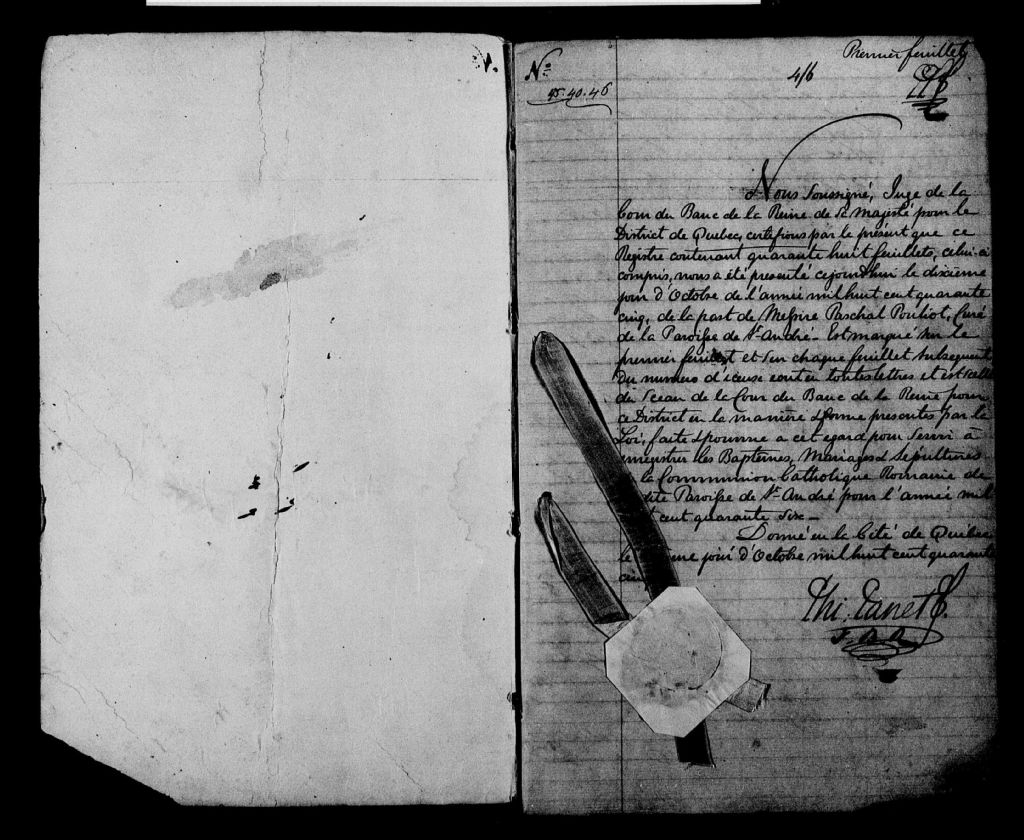 Premier feuillet
4/6
No
95.40.46
Nous Soussigné, Juge de la
Cour du Banc de la Reine de Sa Majesté pour le
District de Quebec, certifions par le présent que ce
Registre contenant quarante huit feuillets, celui-ci
compris, nous a été presenté cejourdhui le dixieme
jour d'Octobre de l'année mil huit cent quarante
cinq, de la part de Messire Paschal Pouliot, Curé
de la Paroisse de St-André. Est marqué sur le
premier feuillet et sur chaque feuillet subsequent
du numero d'iceux en toutes lettres et est scellé
du Sceau de la Cour du Banc de la Reine pour
ce District en la manière & forme presentes par la
Loi, faite & pourvue a cet egard pour servir à
enregistrer les Baptemes, Mariages & Sépultures
la Communion Catholique Romaine de
dite Paroisse de St-André pour l'année mil
cent quarante six_
Donné en la Cité de Quebec
le jour d'Octobre mil huit cent quarante
cinq
Phi. Panet